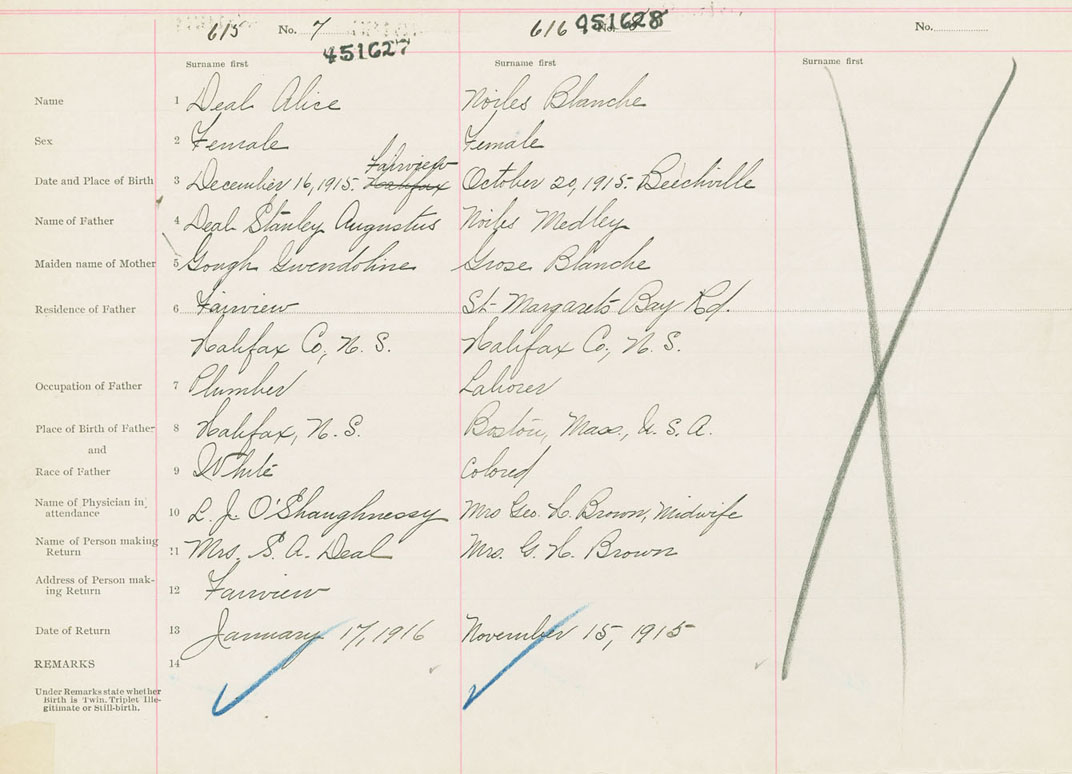 615 No. 7 616 No. 8 No.
451627 451628
Surname first Surname first Surname first
Name 1 Deal Alice Noiles Blanche
Sex 2 Female Female
Fairview
Date and Place of Birth 3 December 16, 1915. Halifax October 20, 1915. Beechville
Name of Father 4 Deal Stanley Augustus Noiles Medley
Maiden name of Mother 5 Gough Gwendoline Grose Blanche
Residence of Father 6 Fairview St. Margarets Bay Rd.
Halifax Co., N. S. Halifax Co., N. S.
Occupation of Father 7 Plumber Laborer
Place of Birth of Father 8 Halifax, N. S. Boston, Mass., U. S. A.
and
Race of Father 9 White Colored
Name of Physician in attendance 10 L. J. O'Shaughnessy Mrs Geo. H. Brown, Midwife
Name of Person making Return 11 Mrs. S. A. Deal Mrs. G. H. Brown
Address of Person making Return 12 Fairview
Date of Return 13 January 17, 1916 November 15, 1915
REMARKS 14
Under Remarks state whether
Birth is Twin, Triplet Ille-
gitimate or Still-birth.